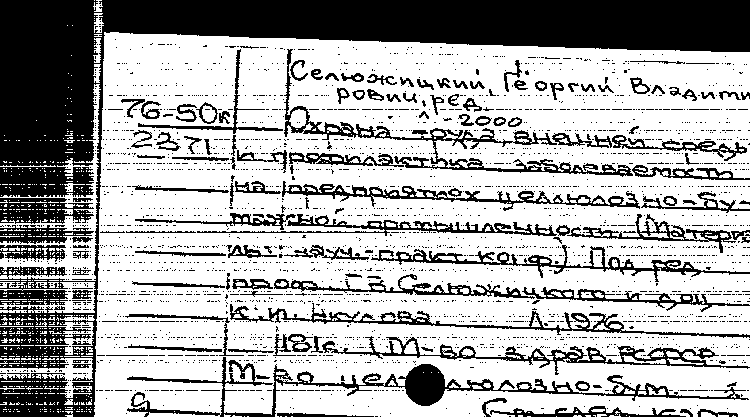 Селюжицкий, Георгий Владими-
рович, ред.
76-50к
2371
1 -2000
Охрана труда, внешней среды
и профилактика заболеваемости
на предприятиях целлюлозно-бу-
мажной промышленности. (Матери-
алы науч.-практ. конф.) Под ред.
проф. Г.В. Селюжицкого и доц.
К.И. Никулова. Л., 1976.
181с. (М-во здрав. РСФСР.
М-во целлюлозно-бум.
См. след. карт.